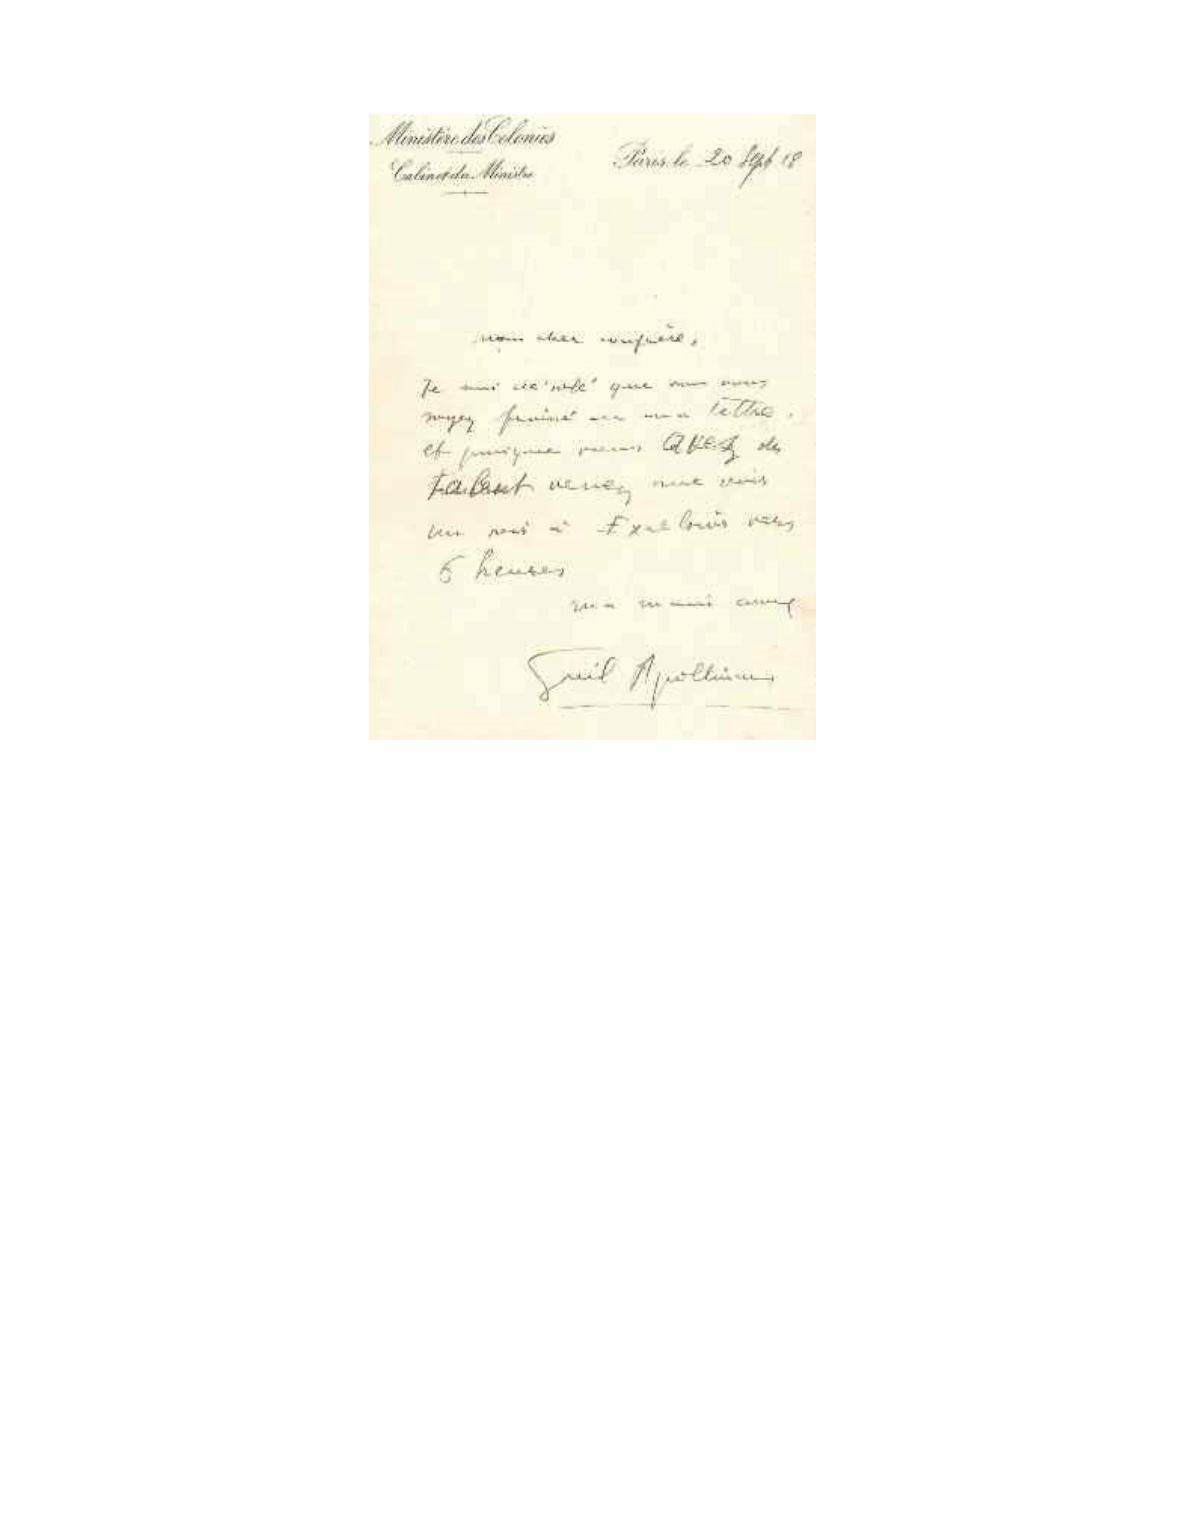 Ministère des Colonies
Cabinet du Ministre
Paris, le 20 Sept 18
mon cher confrère,
Je suis désolé que vous vous
soyez froissé de ma lettre.
et puisque vous avez du
talent venez me voir
un soir à Excelsior vers
6 heures
ma main amie
Guil Apollinaire